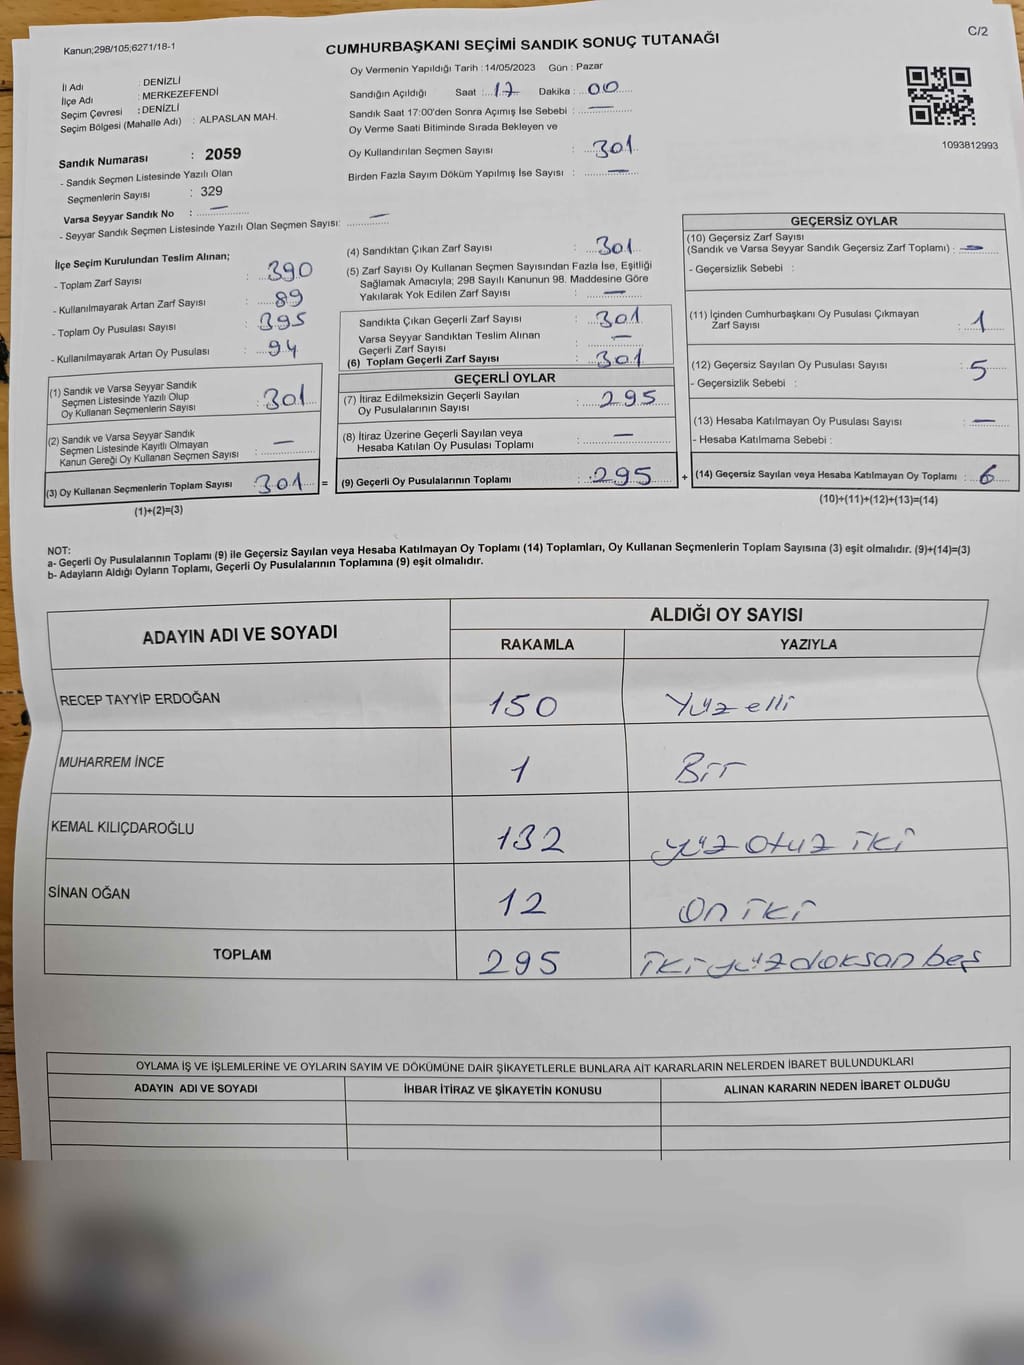 Kanun;298/105;6271/18-1
C/2
CUMHURBAŞKANI SEÇİMİ SANDIK SONUÇ TUTANAĞI
İl Adı : DENİZLİ
İlçe Adı : MERKEZEFENDİ
Seçim Çevresi : DENİZLİ
Seçim Bölgesi (Mahalle Adı) : ALPASLAN MAH.
Sandık Numarası : 2059
- Sandık Seçmen Listesinde Yazılı Olan
Seçmenlerin Sayısı : 329
Varsa Seyyar Sandık No : —
- Seyyar Sandık Seçmen Listesinde Yazılı Olan Seçmen Sayısı: —
Oy Vermenin Yapıldığı Tarih : 14/05/2023 Gün : Pazar
Sandığın Açıldığı Saat : 17 Dakika : 00
Sandık Saat 17:00'den Sonra Açımış İse Sebebi : —
Oy Verme Saati Bitiminde Sırada Bekleyen ve
Oy Kullandırılan Seçmen Sayısı : 301
Birden Fazla Sayım Döküm Yapılmış İse Sayısı : —
1093812993
İlçe Seçim Kurulundan Teslim Alınan;
- Toplam Zarf Sayısı : 390
- Kullanılmayarak Artan Zarf Sayısı : 89
- Toplam Oy Pusulası Sayısı : 395
- Kullanılmayarak Artan Oy Pusulası : 94
(1) Sandık ve Varsa Seyyar Sandık
Seçmen Listesinde Yazılı Olup
Oy Kullanan Seçmenlerin Sayısı : 301
(2) Sandık ve Varsa Seyyar Sandık
Seçmen Listesinde Kayıtlı Olmayan
Kanun Gereği Oy Kullanan Seçmen Sayısı : —
(3) Oy Kullanan Seçmenlerin Toplam Sayısı : 301 =
(1)+(2)=(3)
(4) Sandıktan Çıkan Zarf Sayısı : 301
(5) Zarf Sayısı Oy Kullanan Seçmen Sayısından Fazla İse, Eşitliği
Sağlamak Amacıyla; 298 Sayılı Kanunun 98. Maddesine Göre
Yakılarak Yok Edilen Zarf Sayısı : —
Sandıkta Çıkan Geçerli Zarf Sayısı : 301
Varsa Seyyar Sandıktan Teslim Alınan
Geçerli Zarf Sayısı : —
(6) Toplam Geçerli Zarf Sayısı : 301
GEÇERLİ OYLAR
(7) İtiraz Edilmeksizin Geçerli Sayılan
Oy Pusulalarının Sayısı : 295
(8) İtiraz Üzerine Geçerli Sayılan veya
Hesaba Katılan Oy Pusulası Toplamı : —
(9) Geçerli Oy Pusulalarının Toplamı : 295 +
GEÇERSİZ OYLAR
(10) Geçersiz Zarf Sayısı
(Sandık ve Varsa Seyyar Sandık Geçersiz Zarf Toplamı) : —
- Geçersizlik Sebebi :
(11) İçinden Cumhurbaşkanı Oy Pusulası Çıkmayan
Zarf Sayısı : 1
(12) Geçersiz Sayılan Oy Pusulası Sayısı : 5
- Geçersizlik Sebebi :
(13) Hesaba Katılmayan Oy Pusulası Sayısı : —
- Hesaba Katılmama Sebebi :
(14) Geçersiz Sayılan veya Hesaba Katılmayan Oy Toplamı : 6
(10)+(11)+(12)+(13)=(14)
NOT:
a- Geçerli Oy Pusulalarının Toplamı (9) ile Geçersiz Sayılan veya Hesaba Katılmayan Oy Toplamı (14) Toplamları, Oy Kullanan Seçmenlerin Toplam Sayısına (3) eşit olmalıdır. (9)+(14)=(3)
b- Adayların Aldığı Oyların Toplamı, Geçerli Oy Pusulalarının Toplamına (9) eşit olmalıdır.
ADAYIN ADI VE SOYADI
ALDIĞI OY SAYISI
RAKAMLA YAZIYLA
RECEP TAYYİP ERDOĞAN 150 Yüz elli
MUHARREM İNCE 1 Bir
KEMAL KILIÇDAROĞLU 132 yüz otuz iki
SİNAN OĞAN 12 on iki
TOPLAM 295 iki yüz doksan beş
OYLAMA İŞ VE İŞLEMLERİNE VE OYLARIN SAYIM VE DÖKÜMÜNE DAİR ŞİKAYETLERLE BUNLARA AİT KARARLARIN NELERDEN İBARET BULUNDUKLARI
ADAYIN ADI VE SOYADI İHBAR İTİRAZ VE ŞİKAYETİN KONUSU ALINAN KARARIN NEDEN İBARET OLDUĞU